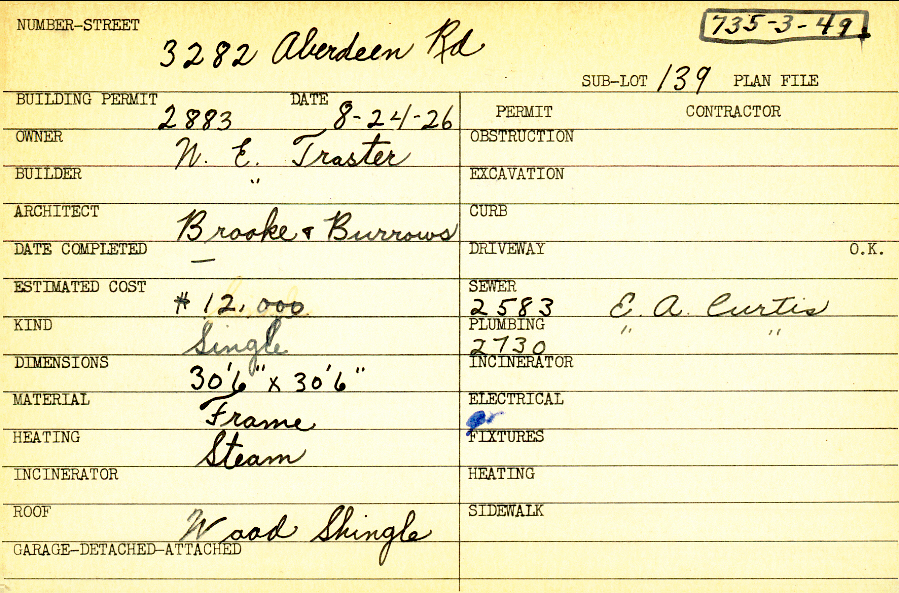 NUMBER-STREET 3282 Aberdeen Rd
735-3-49
SUB-LOT 139 PLAN FILE
BUILDING PERMIT 2883 DATE 8-24-26
OWNER N. E. Traster
BUILDER "
ARCHITECT Brooke & Burrows
DATE COMPLETED —
ESTIMATED COST $12,000
KIND Single
DIMENSIONS 30'6" x 30'6"
MATERIAL Frame
HEATING Steam
INCINERATOR
ROOF Wood Shingle
GARAGE-DETACHED-ATTACHED
PERMIT CONTRACTOR
OBSTRUCTION
EXCAVATION
CURB
DRIVEWAY O.K.
SEWER 2583 E. A. Curtis
PLUMBING 2730 " "
INCINERATOR
ELECTRICAL
FIXTURES
HEATING
SIDEWALK